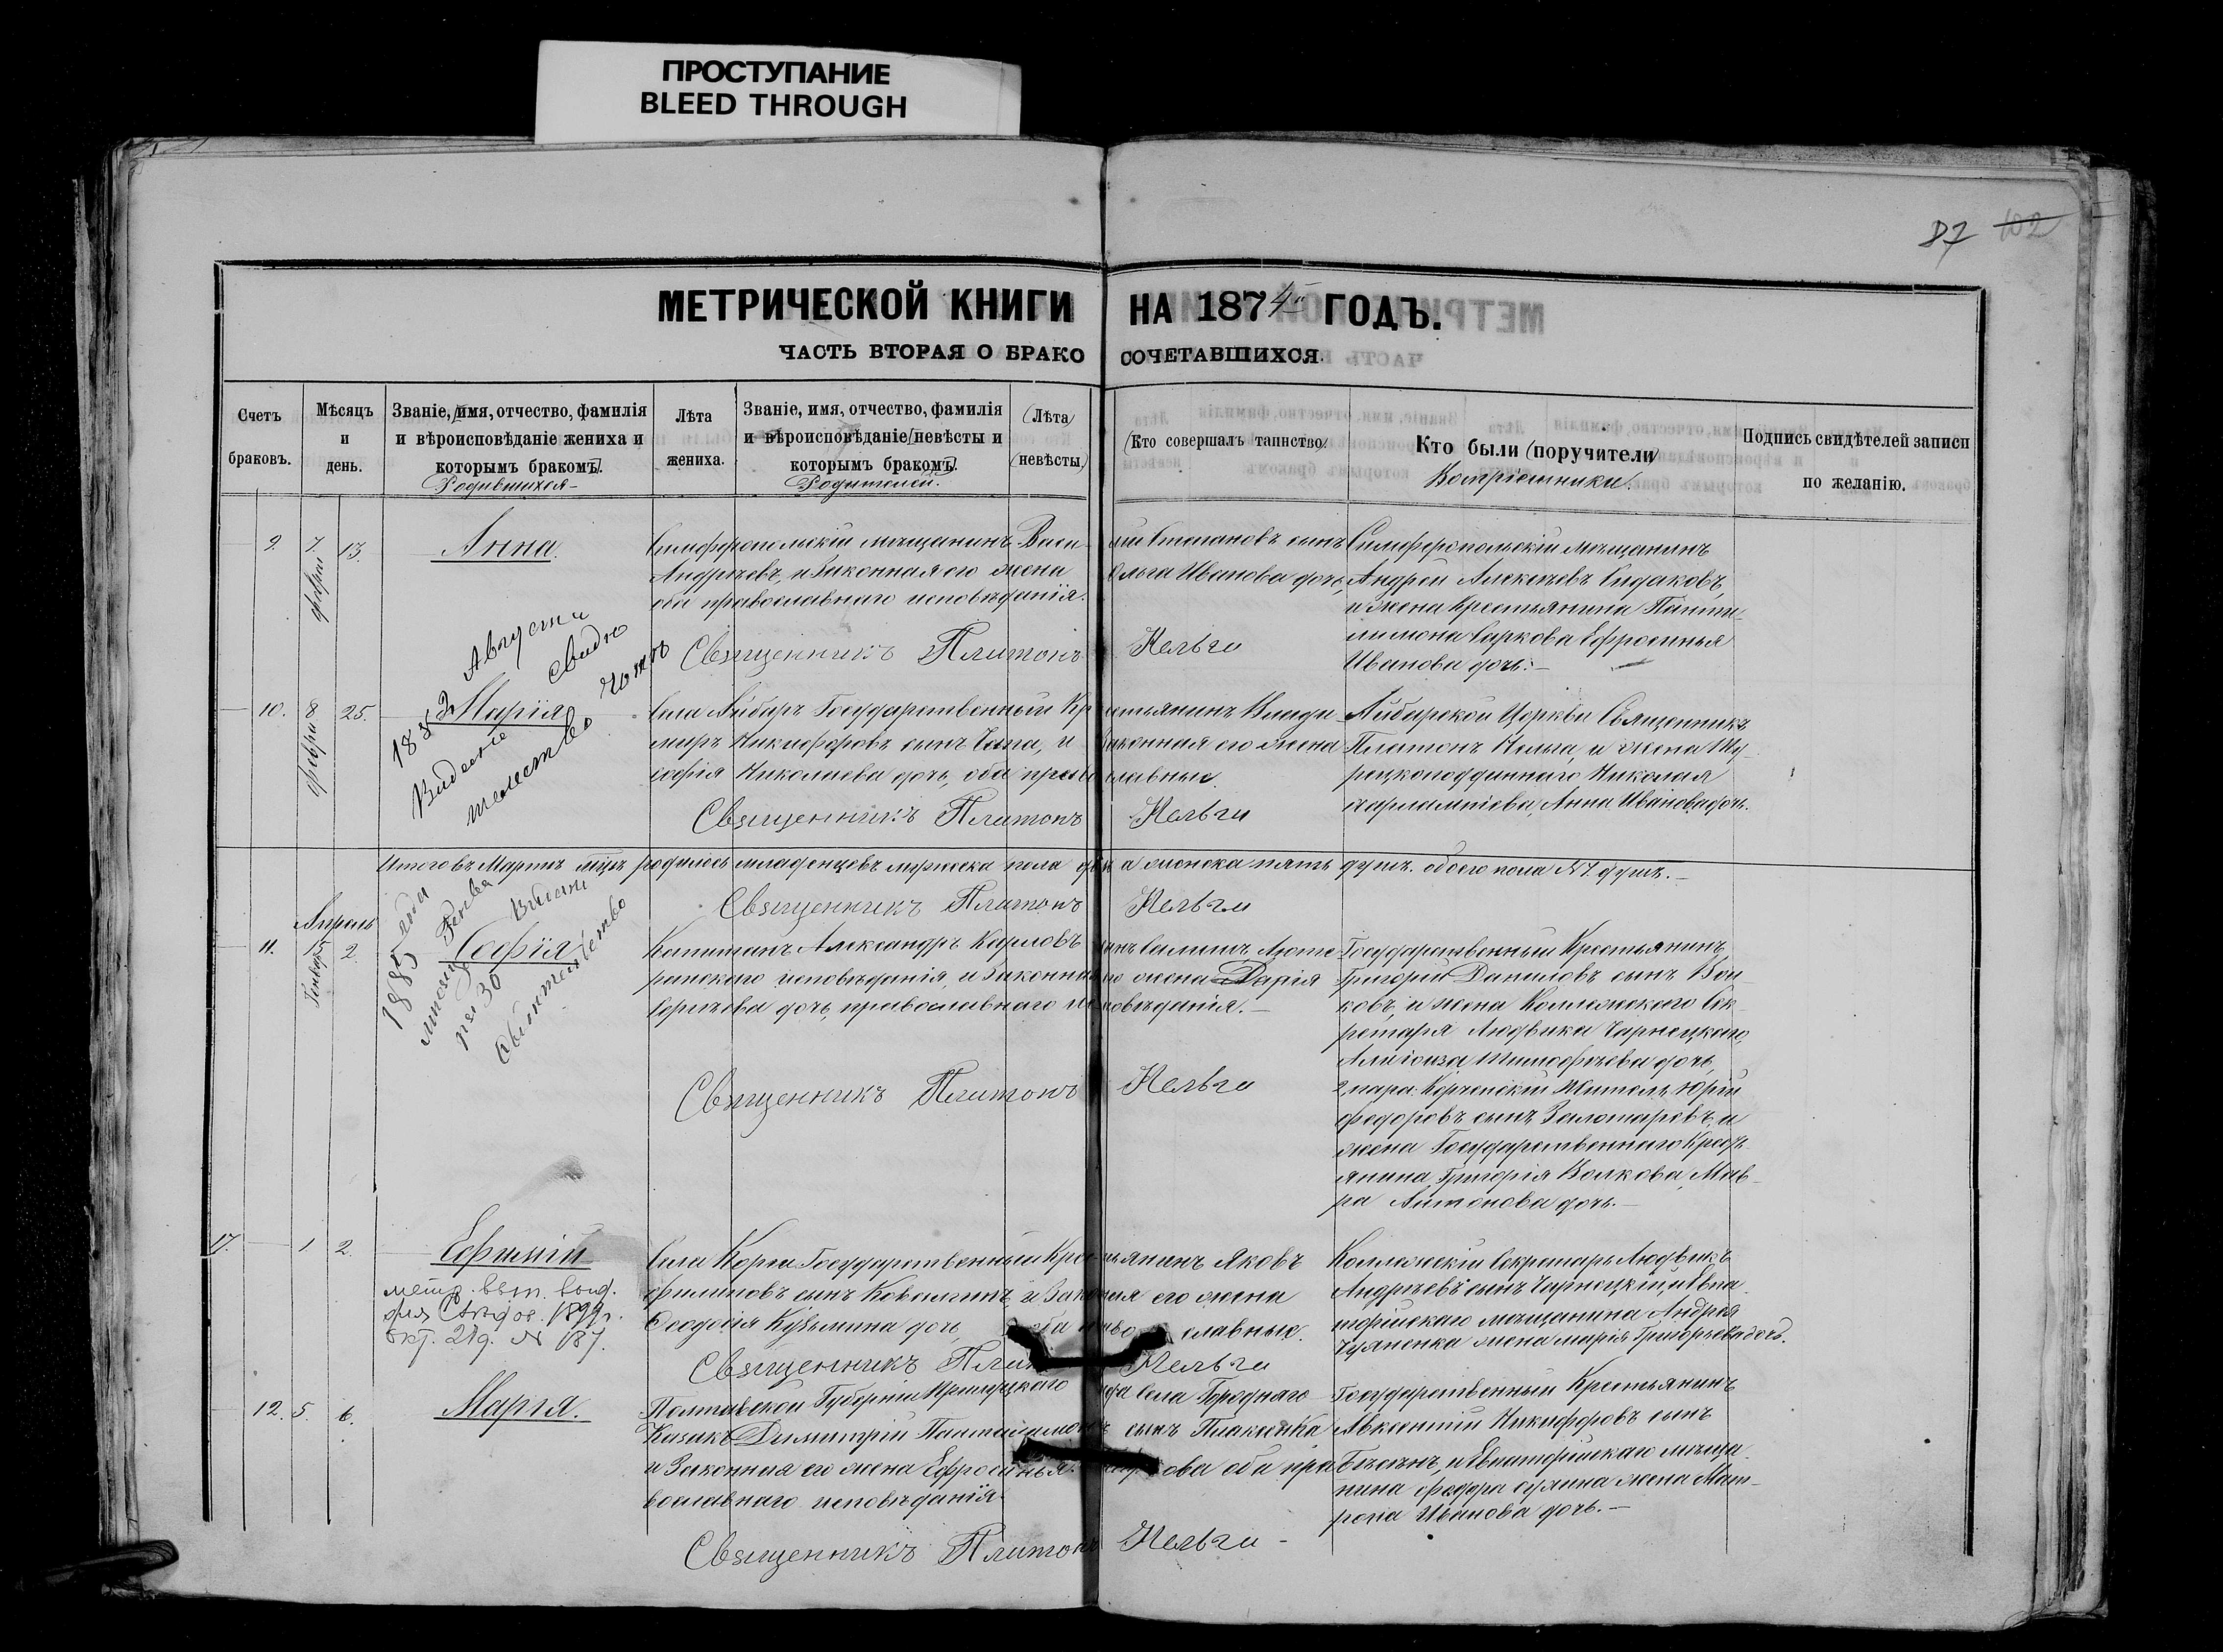 ПРОСТУПАНИЕ
BLEED THROUGH
87 102
МЕТРИЧЕСКОЙ КНИГИ НА 1874 ГОДЪ.
ЧАСТЬ ВТОРАЯ О БРАКОСОЧЕТАВШИХСЯ.
Счетъ браковъ.
Мѣсяцъ и день.
Званіе, имя, отчество, фамилія
и вѣроисповѣданіе жениха и
которымъ бракомъ.
Родившихся
Лѣта жениха.
Званіе, имя, отчество, фамилія
и вѣроисповѣданіе невѣсты и
которымъ бракомъ.
Родителей.
(Лѣта невѣсты)
(Кто совершалъ таинство)
Кто были (поручители)
Воспріемники.
Подпись свидѣтелей записи
по желанію.
9. 7. феврал 13.
Анна.
Симферопольскій мѣщанинъ Васи- лій Степановъ сынъ
Андреевъ, и Законная его жена Ольга Иванова дочь,
оба православнаго исповѣданія.
Священникъ Платонъ Кельги
Симферопольскій мѣщанинъ
Андрей Алексѣевъ Сидаковъ,
и жена Крестьянина
Саркова Ефросинья
Иванова дочь.
1883 Августа
Видено свидѣ
10. 8 феврал 25.
Марія
Села Айбаръ Государственный Крестьянинъ Влади-
миръ Никифоровъ сынъ и Законная его жена
Софія Николаева дочь, оба православные.
Священникъ Платонъ Кельги
Айбарской Церкви Священникъ
Платонъ Кельга, и жена Ту-
рецкоподданнаго Николая
Харлампіева, Анна Иванова дочь.
Итого въ Мартѣ мцѣ родилось младенцевъ мужеска пола два женска пять душъ. обоего пола №7 душъ.
Священникъ Платонъ Кельги
Апрель
11. 15 Генвар 2.
Софія
1885 года
№ 30
Свидетельство
Капитанъ Александръ Карловъ сынъ Люте-
ранского исповѣданія, и Законная его жена Дарія
Сергѣева дочь, православнаго исповѣданія.
Священникъ Платонъ Кельги
Государственный Крестьянинъ
Григорій Даниловъ сынъ Вол-
ковъ, и жена Коллежскаго Сек-
ретаря Людвика Чарнецкаго,
Тимофѣева дочь,
2 пара: Керченскій Житель Юрій
Федоровъ сынъ и
жена Государственнаго Кресть-
янина Григорія Волкова, Мав-
ра Антонова дочь.
17. 1. 2.
Ефимій
метр. вып. выд.
для
окт. 21 д. № 187.
Села Государственный Крестьянинъ Яковъ
Филиповъ сынъ и Законная его жена
Феодосія Кузьмина дочь, оба православные.
Священникъ Платонъ Кельги
Коллежскій Секретарь Людвикъ
Андреевъ сынъ Чарнецкій, и Евпа-
торійскаго мѣщанина Андрея
жена Марія Григорьева дочь.
12. 5. 6.
Марія.
Полтавской Губерніи Прилуцкаго уѣзда села
Казакъ Димитрій Пантелимоновъ сынъ
и Законная его жена Ефросинья оба пра-
вославнаго исповѣданія.
Священникъ Платонъ Кельги
Государственный Крестьянинъ
Авксентій Никифоровъ сынъ
и Евпаторійскаго мѣща-
нина Федора жена Мат-
рона Иванова дочь.